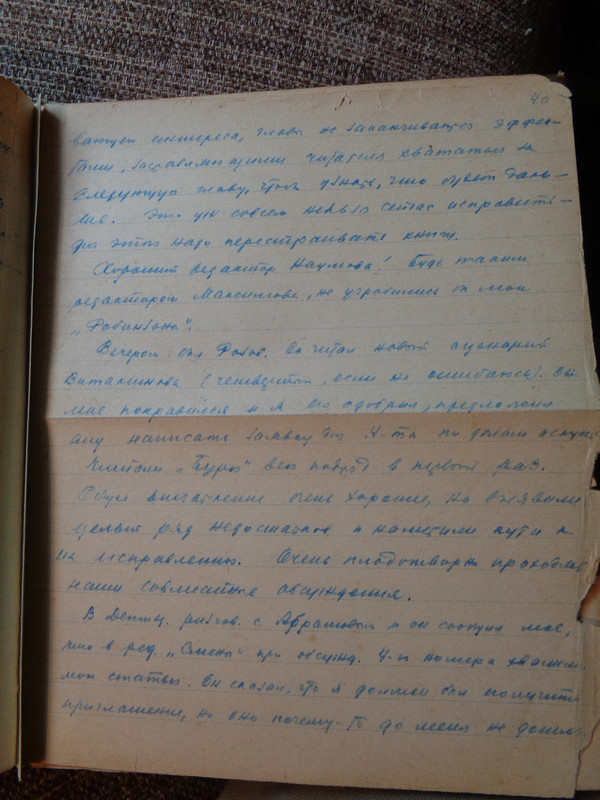 40
вающем интереса, главы не заканчиваются эффек-
тами, заставляющими читателя хвататься за
следующую главу, чтоб узнать, что будет даль-
ше. Это уж совсем нельзя сейчас исправить -
для этого надо перестраивать книгу.
Хороший редактор Наумова! Будь таким
редактором Максимова, не угробились бы мои
„Робинзоны".
Вечером был Розов. Он читал новый сценарий
(четвертый, если не ошибаюсь). Он
мне понравился и я его одобрил, предложил
ему написать для К-та по делам
Читали „Бурю" всю подряд в первый раз.
Общее впечатление очень хорошее, но выявили
целый ряд недостатков и наметили пути к
их исправлению. Очень плодотворно проходят
наши совместные обсуждения.
В разгов. с Абрамовым и он сообщил мне,
что в ред. „Смены" при обсужд. 4-го номера хвалили
мою статью. Он сказал, что я должен был получить
приглашение, но оно почему-то до меня не дошло